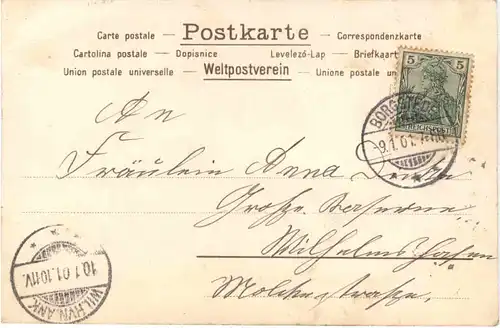 Carte postale — Postkarte — Correspondenzkarte
Cartolina postale — Dopisnice Levelező-Lap — Briefkaart
Union postale universelle — Weltpostverein — Unione postale
5 5
REICHSPOST
BORGSTEDE
-9.1.01.
An
Fräulein Anna
Große Kaserne
Wilhelmshafen
Moltkestraße.
10.1.01.10-11V.
WILHVN. ANK.